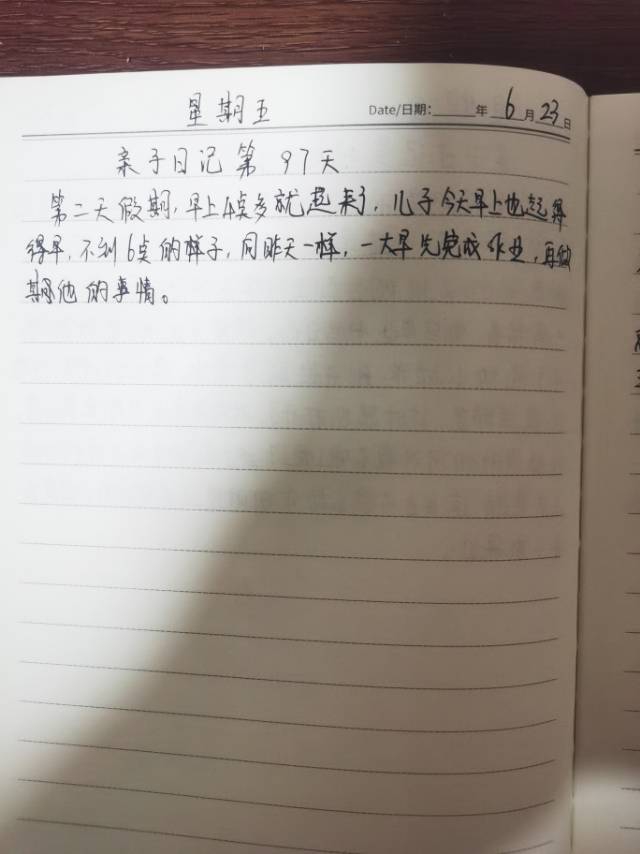 星期五
Date/日期: 年 6 月 23 日
亲子日记第97天
第二天假期,早上4点多就起来了,儿子今天早上也起得
得早,不到6点的样子,同昨天一样,一大早先完成作业,再做
其他的事情。